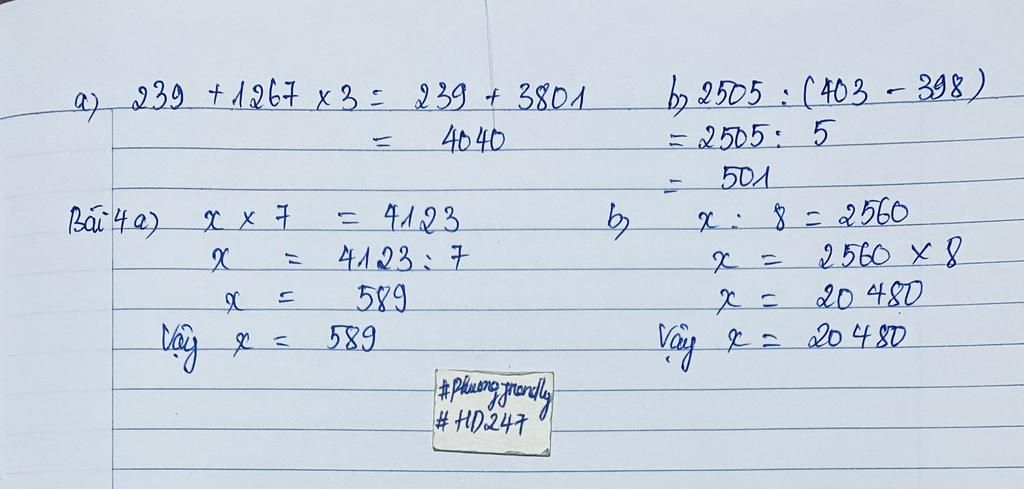 a) 239 + 1267 x 3 = 239 + 3801
= 4040
b, 2505 : (403 - 398)
= 2505 : 5
= 501
Bài 4 a) x x 7 = 4123
x = 4123 : 7
x = 589
Vậy x = 589
b, x : 8 = 2560
x = 2560 x 8
x = 20 480
Vậy x = 20 480
#HD247